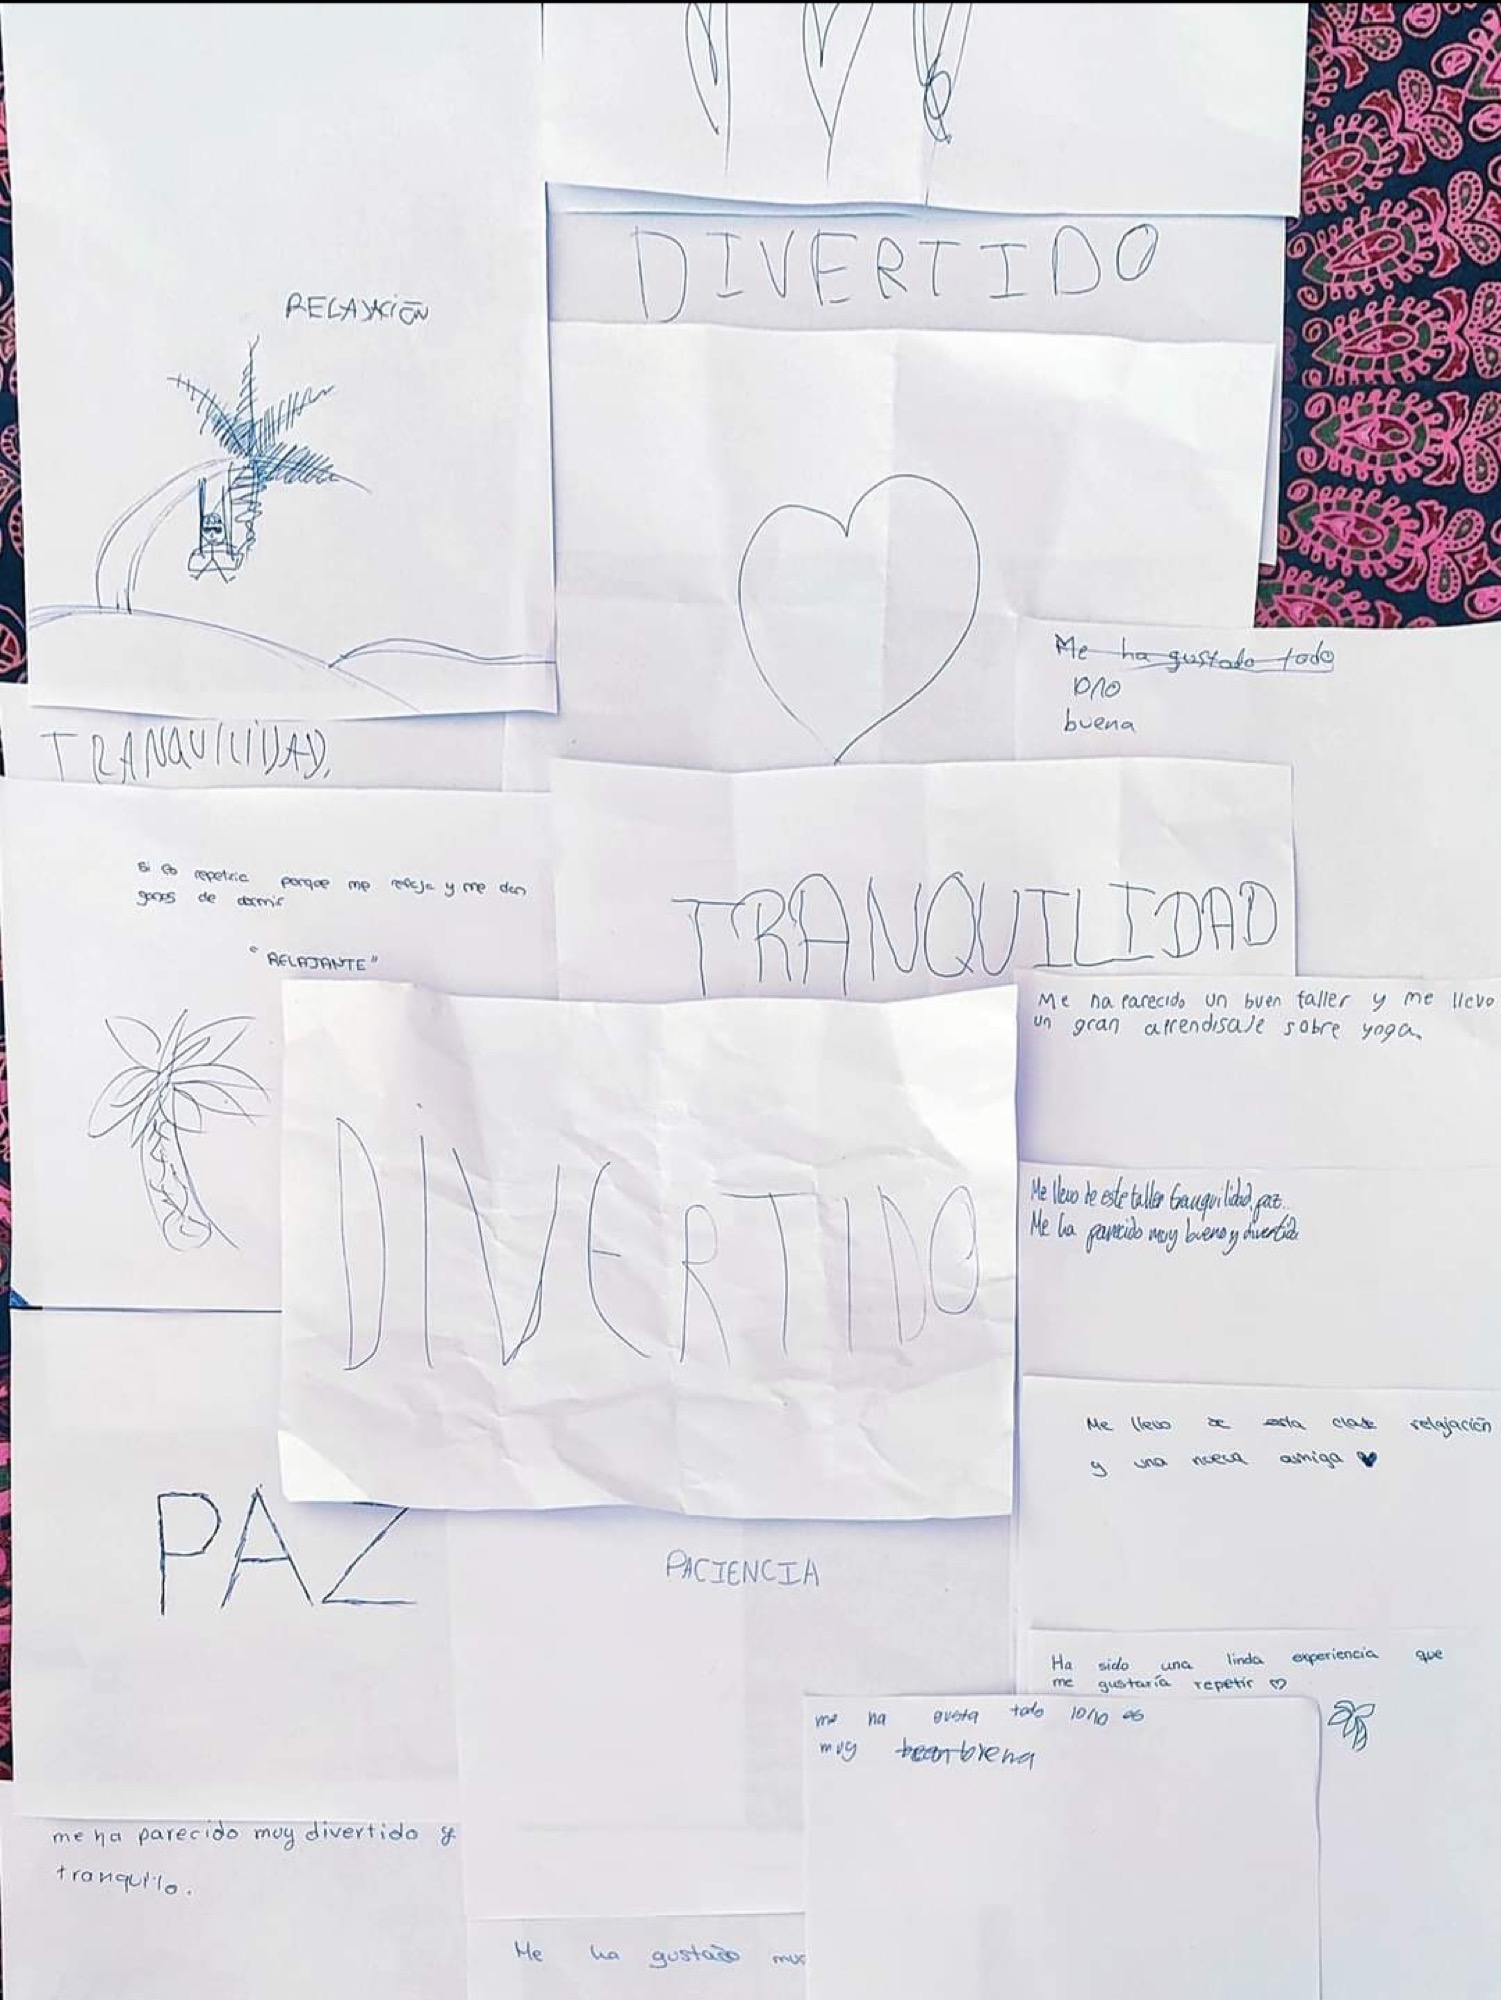 DIVERTIDO
RELAJACIÓN
Me ha gustado todo
buena
TRANQUILIDAD.
si lo repetiria porque me relaja y me dan
ganas de dormir
"RELAJANTE"
TRANQUILIDAD
Me ha parecido un buen taller y me llevo
un gran aprendisaje sobre yoga
DIVERTIDO
Me llevo de este taller tranquilidad, paz.
Me ha parecido muy bueno y divertido
Me llevo de esta clase relajación
y una nueva amiga
PAZ
PACIENCIA
Ha sido una linda experiencia que
me gustaría repetir
me ha gusta todo 10/10 es
muy buena
me ha parecido muy divertido y
tranquilo.
Me ha gustado muc